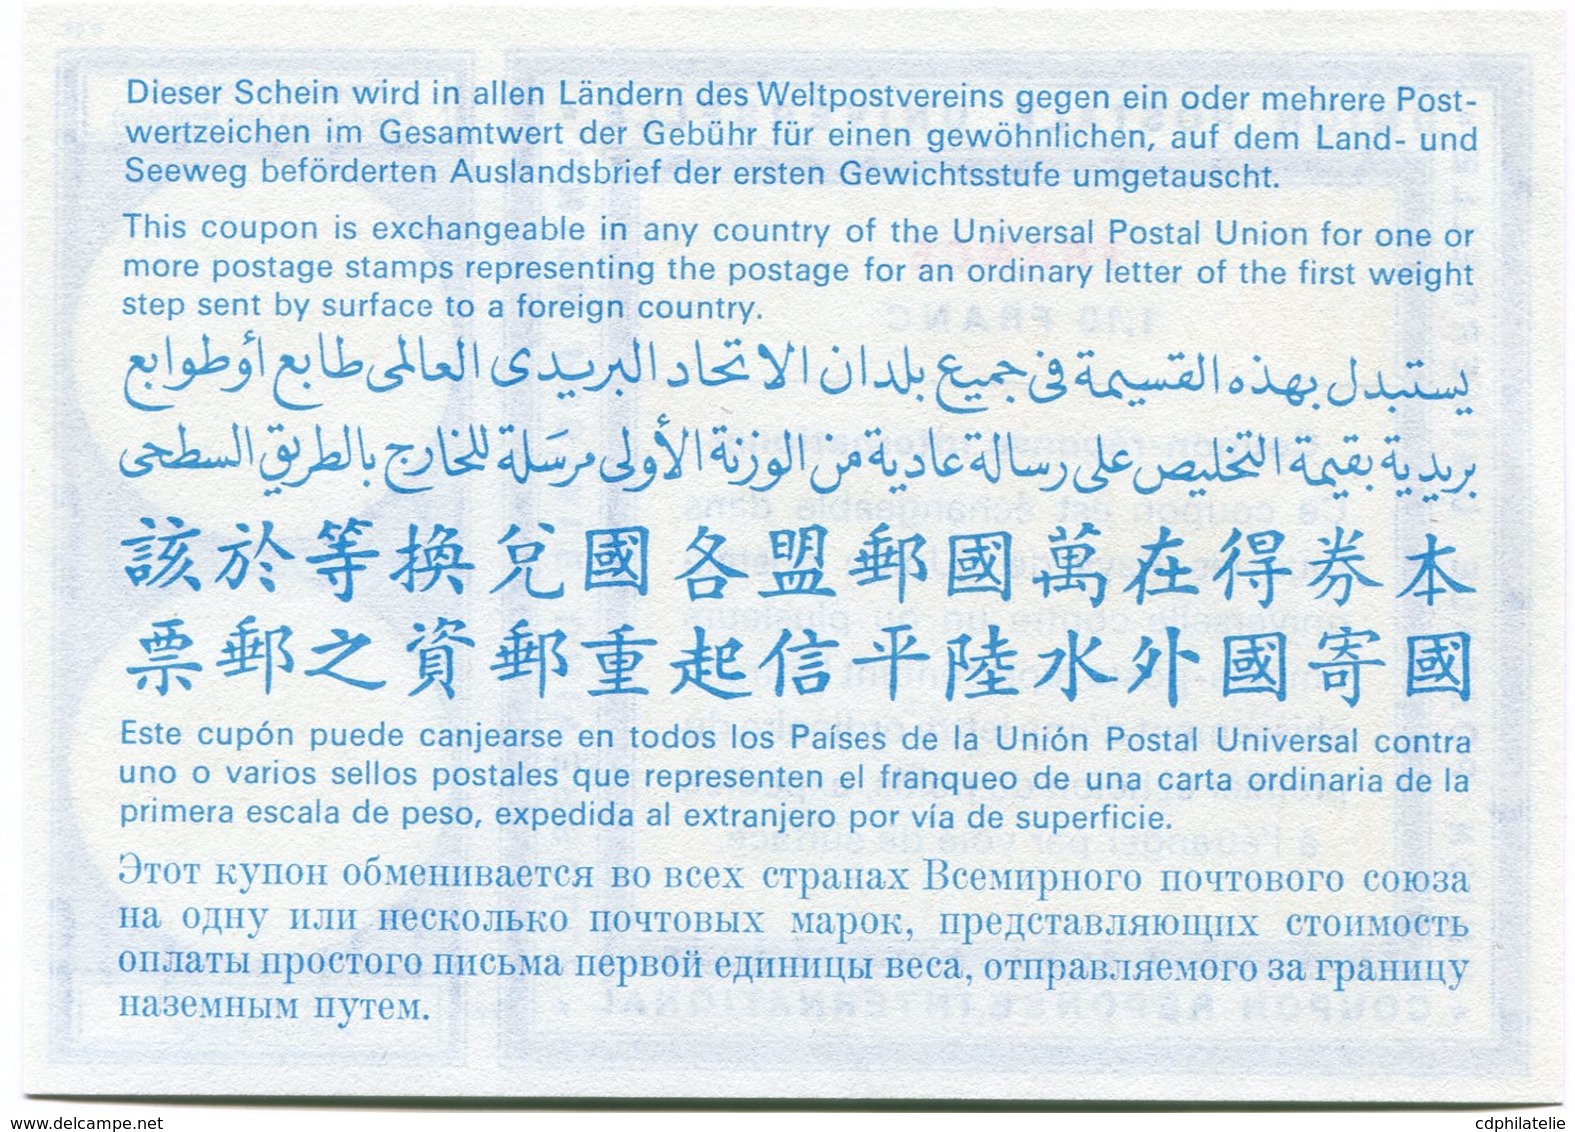 Dieser Schein wird in allen Ländern des Weltpostvereins gegen ein oder mehrere Post-
wertzeichen im Gesamtwert der Gebühr für einen gewöhnlichen, auf dem Land- und
Seeweg beförderten Auslandsbrief der ersten Gewichtsstufe umgetauscht.
This coupon is exchangeable in any country of the Universal Postal Union for one or
more postage stamps representing the postage for an ordinary letter of the first weight
step sent by surface to a foreign country.
يستبدل بهذه القسيمة فى جميع بلدان الاتحاد البريدى العالمى طابع أو طوابع
بريدية بقيمة التخليص على رسالة عادية من الوزنة الأولى مرسَلة للخارج بالطريق السطحى
本券得在萬國郵盟各國兌換等於該
國寄國外水陸平信起重郵資之郵票
Este cupón puede canjearse en todos los Países de la Unión Postal Universal contra
uno o varios sellos postales que representen el franqueo de una carta ordinaria de la
primera escala de peso, expedida al extranjero por vía de superficie.
Этот купон обменивается во всех странах Всемирного почтового союза
на одну или несколько почтовых марок, представляющих стоимость
оплаты простого письма первой единицы веса, отправляемого за границу
наземным путем.
www.delcampe.net
cdphilatelie